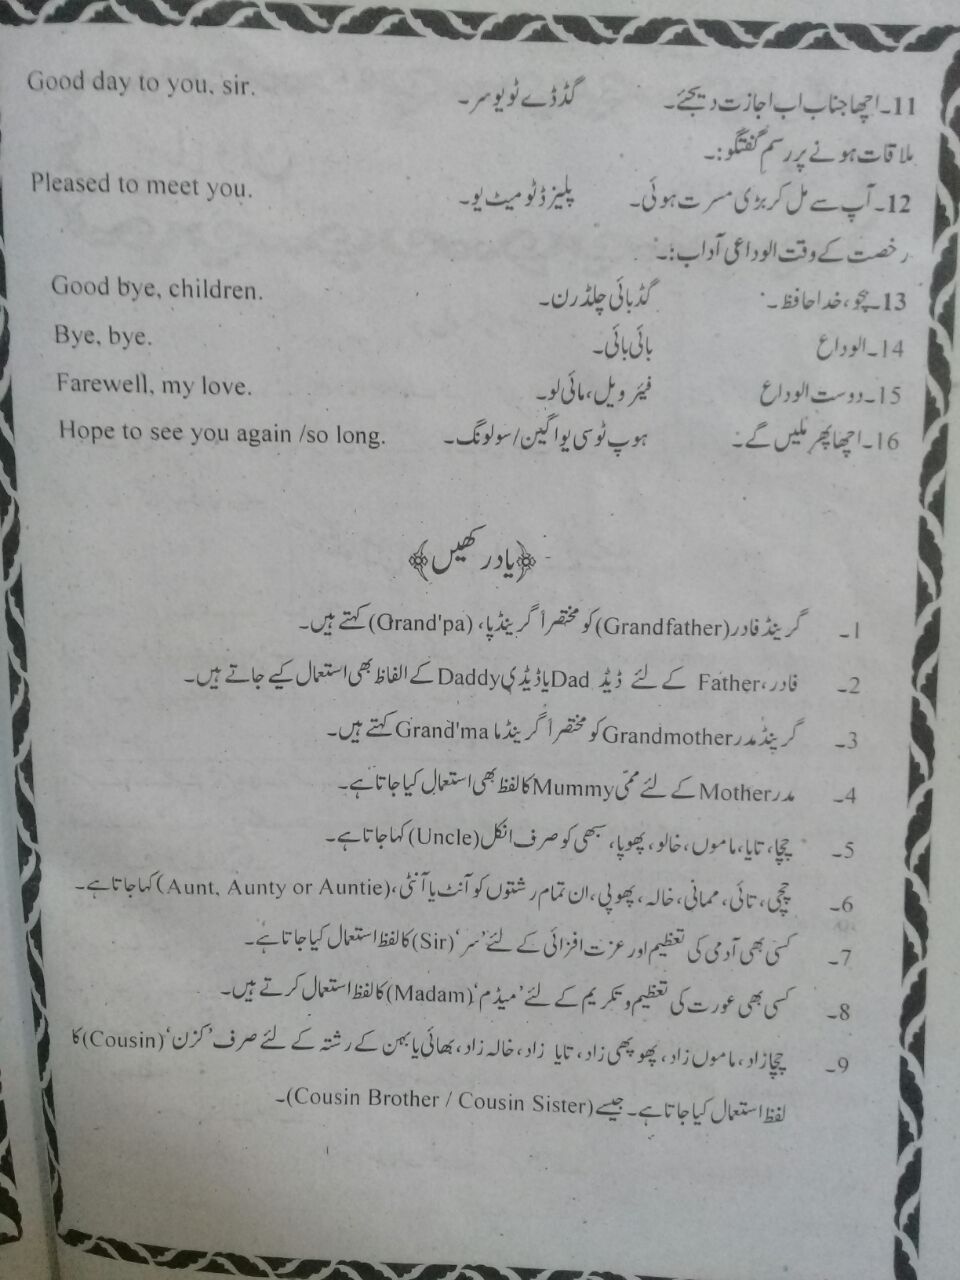 11۔ اچھا جناب اب اجازت دیجئے۔ گڈ ڈے ٹو یو سر۔ Good day to you, sir.
ملاقات ہونے پر رسمِ گفتگو:۔
12۔ آپ سے مل کر بڑی مسرت ہوئی۔ پلیزڈ ٹو میٹ یو۔ Pleased to meet you.
رخصت کے وقت الوداعی آداب:۔
13۔ بچو، خدا حافظ۔ گڈ بائی چلڈرن۔ Good bye, children.
14۔ الوداع بائی بائی۔ Bye, bye.
15۔ دوست الوداع فیئر ویل، مائی لو۔ Farewell, my love.
16۔ اچھا پھر ملیں گے۔ ہوپ ٹو سی یو اگین/سو لونگ۔ Hope to see you again /so long.
﴿یاد رکھیں﴾
1۔ گرینڈ فادر (Grandfather) کو مختصراً گرینڈ پا، (Grand'pa) کہتے ہیں۔
2۔ فادر، Father کے لئے ڈیڈ Dad یا ڈیڈی Daddy کے الفاظ بھی استعمال کیے جاتے ہیں۔
3۔ گرینڈ مدر Grandmother کو مختصراً گرینڈ ما Grand'ma کہتے ہیں۔
4۔ مدر Mother کے لئے ممّی Mummy کا لفظ بھی استعمال کیا جاتا ہے۔
5۔ چچا، تایا، ماموں، خالو، پھوپا، سبھی کو صرف انکل (Uncle) کہا جاتا ہے۔
6۔ چچی، تائی، ممانی، خالہ، پھوپی، ان تمام رشتوں کو آنٹ یا آنٹی، (Aunt, Aunty or Auntie) کہا جاتا ہے۔
7۔ کسی بھی آدمی کی تعظیم اور عزت افزائی کے لئے ’سر‘ (Sir) کا لفظ استعمال کیا جاتا ہے۔
8۔ کسی بھی عورت کی تعظیم و تکریم کے لئے ’میڈم‘ (Madam) کا لفظ استعمال کرتے ہیں۔
9۔ چچازاد، ماموں زاد، پھوپھی زاد، تایا زاد، خالہ زاد، بھائی یا بہن کے رشتہ کے لئے صرف ’کزن‘ (Cousin) کا
لفظ استعمال کیا جاتا ہے۔ جیسے (Cousin Brother / Cousin Sister)۔